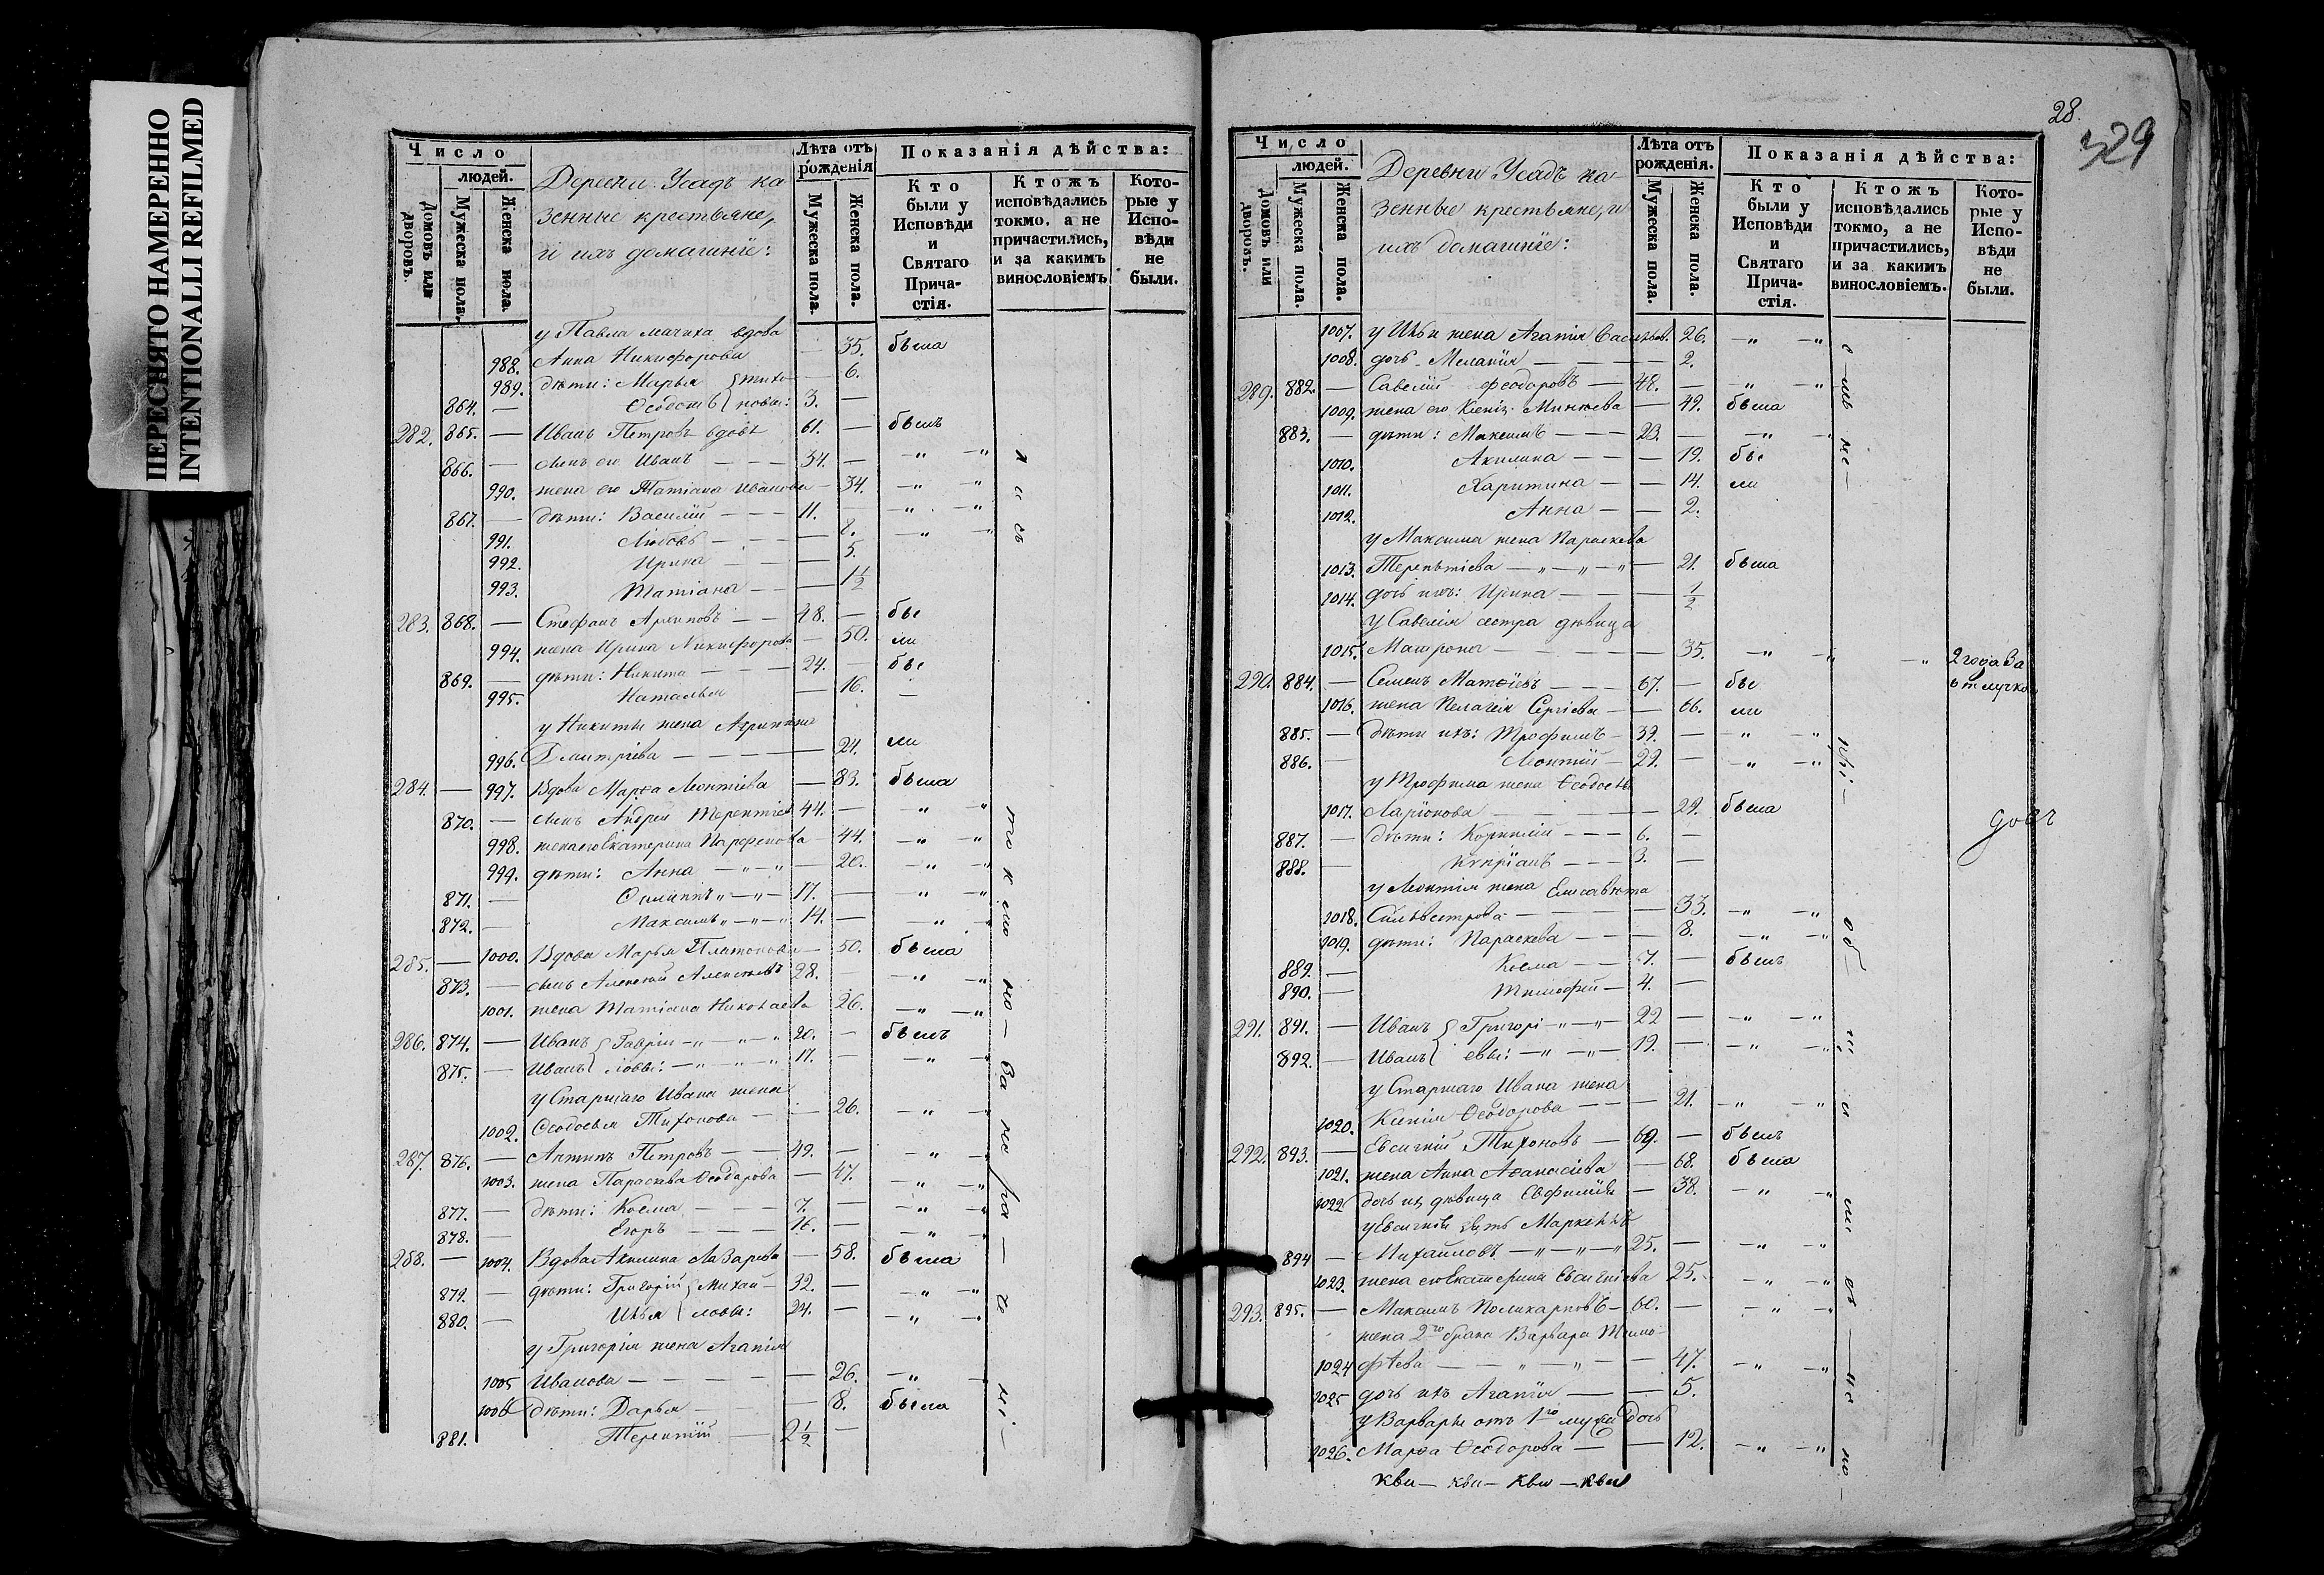 ПЕРЕСНЯТО НАМЕРЕННО
INTENTIONALLI REFILMED
Число
людей.
Домовъ или дворовъ.
Мужеска пола.
Женска пола.
Деревни Усадъ ка-
зенные крестьяне,
и ихъ домашніе:
Лѣта отъ рожденія
Мужеска пола.
Женска пола.
Показанія дѣйства:
Кто были у Исповѣди и Святаго Прича-стія.
Ктожъ исповѣдались токмо, а не причастились, и за какимъ винословіемъ
Кото-рые у Испо-вѣди не были.
у Павла мачиха вдова
988. Анна Никифорова — 35. была
989. дѣти: Марья } Тихо — 6.
864. — Ѳеодотъ } новы: 3. —
282. 865. — Иванъ Петровъ вдовъ 61. — былъ
866. — сынъ его Иванъ — — — 34. — — „ — „
990. жена его Татіана Иванова — 34. — „ — „
867. — дѣти: Василій — — — 11. — — „ — „
991. Любовь — — — 8. — „ — „
992. Ирина — — — 5.
993. Татіана — — — 1½
283. 868. — Стефанъ — — 48. — бы
994. жена Ирина Никифорова — 50. ли
869. — дѣти: Никита — — — 24. — бы
995. Наталья — 16. —
у Никиты жена Агрипина
996. Дмитріева — — — — 24. ли
284. — 997. Вдова Марѳа Леонтіева — 83. была
870. — сынъ Андрей Терентіев 44. — — „ — „
998. жена его Екатерина Парфенова — 44. — „ — „
999. дѣти: Анна — „ — „ — 20. — „ — „
871. — Филиппъ „ — „ — 17. — — „ — „
872. — Максимъ „ — „ — „ 14. — — „ — „
285. — 1000. Вдова Марья Платонова — 50. была
873. — сынъ Алексѣй Алексѣевъ 28. — — „ — „
1001. жена Татіана Николаева 26. — „ — „
286. 874. — Иванъ } Гаврiи — „ — „ — „ 20. — былъ
875. — Иванъ } ловы: — „ — „ — „ 17. — — „ — „
у Старшаго Ивана жена
1002. Ѳеодосья Тихонова — — 26. — „ — „
287. 876. — Антипъ Петровъ — — 49. — — „ — „
1003. жена Параскева Ѳеодорова — 47. — „ — „
877. — дѣти: Косма — — — 7. — — „ — „
878. — Егоръ — — — 16. — — „ — „
288. — 1004. Вдова Акилина Лазарева — 58. была
879. — дѣти: Григорій } Михаи — 32. — — „ — „
880. — Илья } ловы: 24. — — „ — „
у Григорія жена Агапія
1005 Иванова — — — — — 26. — „ — „
1006 дѣти: Дарья — — 8. была
881. Терентій — 2½ —
28.
329
Число
людей.
Домовъ или дворовъ.
Мужеска пола.
Женска пола.
Деревни Усадъ ка-
зенные крестьяне, и
ихъ домашніе:
Лѣта отъ рожденія.
Мужеска пола.
Женска пола.
Показанія дѣйства:
Кто были у Исповѣди и Святаго Прича-стія.
Ктожъ исповѣдались токмо, а не причастились, и за какимъ винословіемъ.
Кото-рые у Испо-вѣди не были.
1007. у Ильи жена Агапія Васильев. 26. — „ — „
1008. дочь Меланія — — — — 2.
289. 882. — Савелій Феодоровъ — 48. — — „ — „
1009. жена его — 49. была
883. — дѣти: Максимъ — — — 23. — — „ —
1010. Акилина — — — 19. бы
1011. Харитина — — 14. ли
1012. Анна — — 2.
у Максима жена Параскева
1013. Терентіева — „ — „ — „ — 21. была
1014. дочь ихъ: Ирина — — — ½
у Савелія сестра дѣвица
1015. Матрона — — — — — 35. — „ — „ — „ 2 года за
290. 884. — Семенъ Матѳіевъ — — — 67. — бы отлучкой
1016. жена Пелагея Сергіева — — 66. ли
885. — дѣти ихъ: Трофимъ — 39. — — „ — „
886. — Леонтій — 29. — — „ — „
у Трофима жена Ѳеодосья
1017. Ларіонова — — — — — 29. была
887. — дѣти: Корнилій — — — 6. —
888. — Кипріанъ — — — 3. —
у Леонтія жена Елисавета
1018. Сильвестрова — — — — 33. — „ — „
1019. дѣти: Параскева — — — 8. — „ — „
889. — Косма — — 7. — былъ
890. — Тимофей — 4. —
291. 891. — Иванъ } Григорі — „ — „ — 22 — — „ — „
892. — Иванъ } евы: — „ — „ — 19. — — „ — „
у Старшаго Ивана жена
1020. Ксенія Ѳеодорова — — — 21. — „ — „
292. 893. — Евсигній Тихоновъ — 69. — былъ
1021. жена Анна Аѳанасіева — 68. была
1022 дочь их дѣвица Евфимія — 38. — „ — „
у Евсигнія зять
894 — Михайловъ — „ — „ — „ 25. — — „ — „
1023. жена его Екатерина Евсигніева 25. — „ — „
293. 895. — Максимъ Поликарповъ — 60. — — „ — „
жена 2го брака Варвара Тимо-
1024 фѣева — — „ — „ — — 47. — „ — „
1025 дочь ихъ Агапія — — 5.
у Варвары отъ 1го мужа дочь
1026. Марѳа Ѳеодорова — — 12. — „ — „